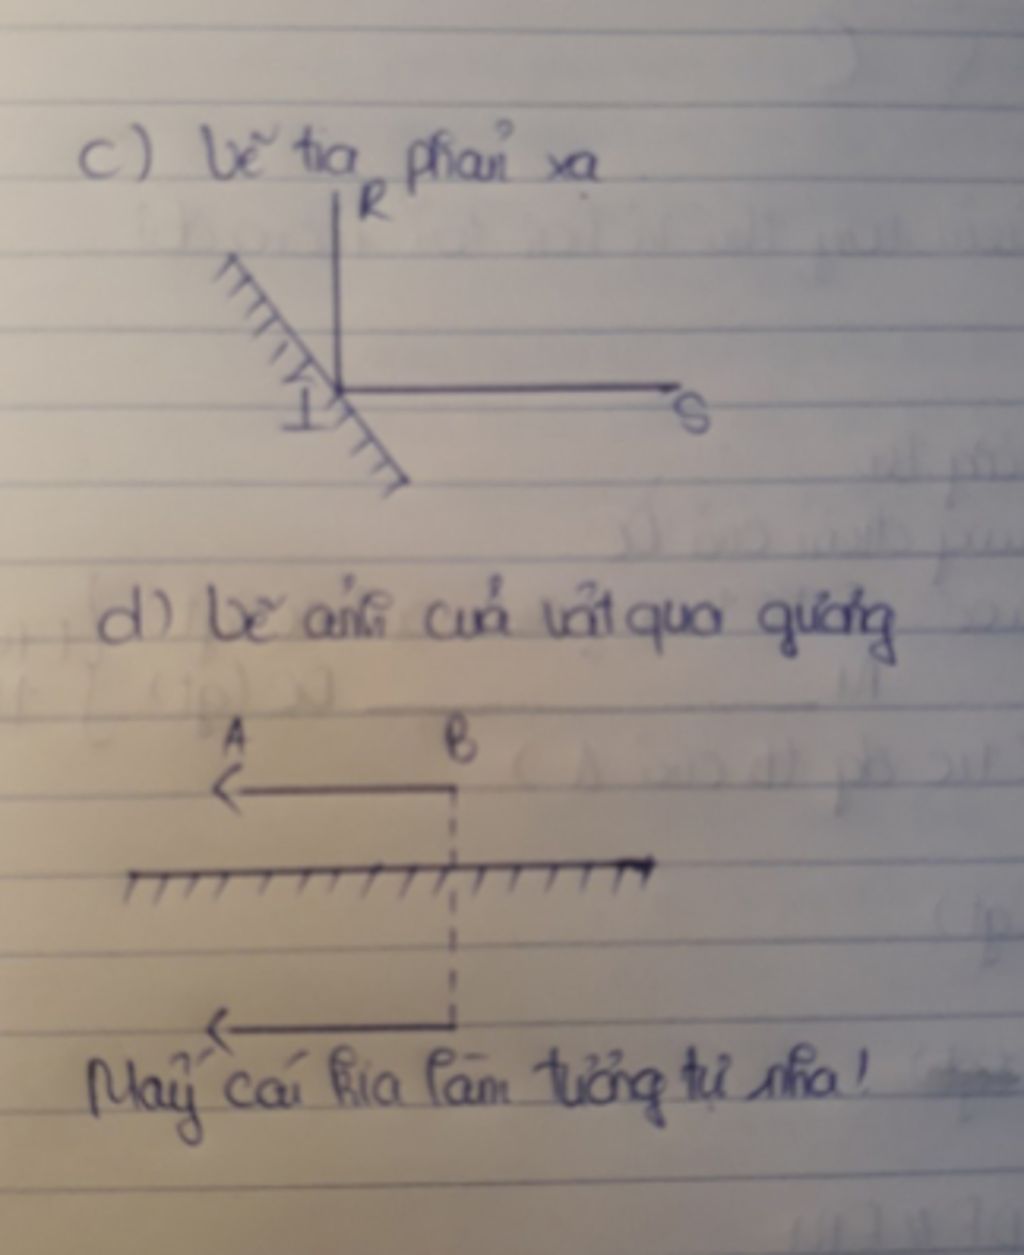 c) Vẽ tia phản xạ
R
I
S
d) Vẽ ảnh của vật qua gương
A B
Mấy cái kia làm tương tự nha!